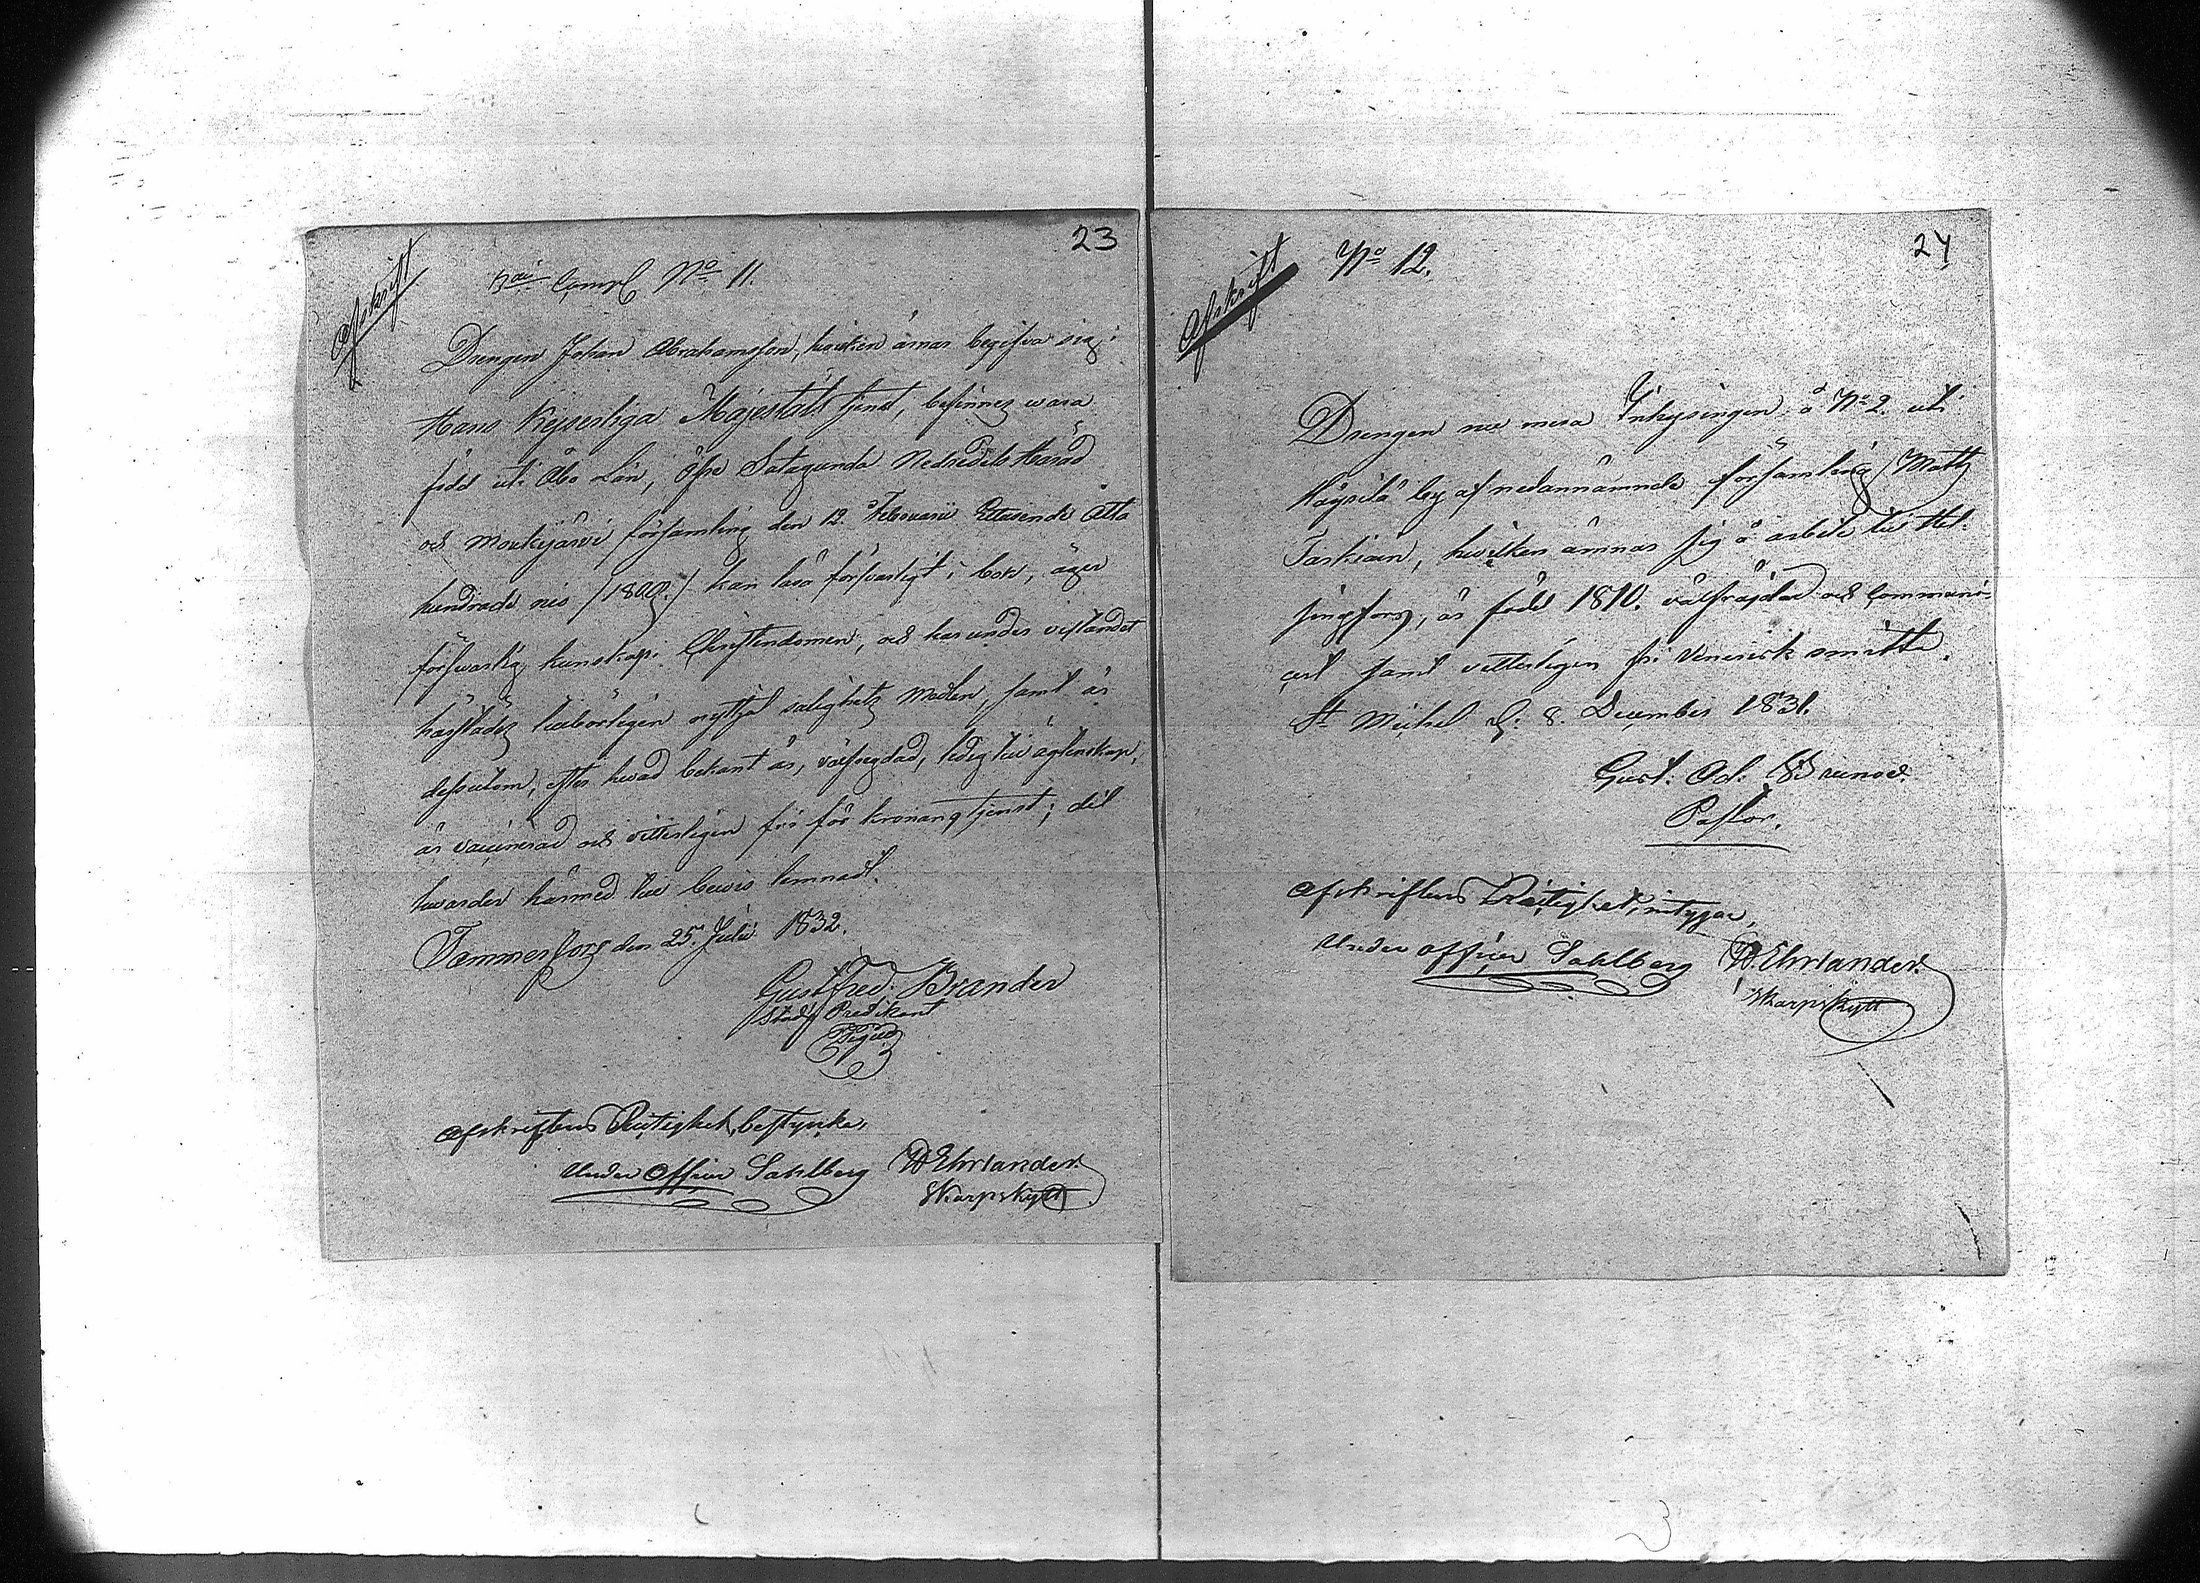 23
Afskrift
3die Comp. No 11.
Drengen Johan Abrahamsson, hvilken ämnar begifva sig i
Hans Kejserliga Majestäts tjenst, befinnes wara
född uti Åbo Län, Öfre Satagunda Nedredels Härad
och Mouhijärvi församling den 12. Februarii Ettusende Åtta
hundrade nio /1809./ kan läsa försvarligt i bok, äger
försvarlig kunskap i Christendomen, och har under vistandet
härstädes tillbörligen nyttjat salighets medlen, samt är
dessutom, efter hvad bekant är, välfrejdad, ledig till ägtenskap,
är vaccinerad och vitterligen fri för kronans tjenst; det
hvarder härmed till bevis lemnadt.
Tammerfors den 25. Julii 1832.
Gust Fred. Brander
Stads Predikant
Afskriftens Rigtighet, bestyrka,
Under Officer Sahlberg W Ehrlander.
Skarpskytt
24
Afskrift
No 12.
Drengen nu mera Inhysingen å No 2. uti
by af nedannämnde församling Matts
Taskinen, hvilken ämnar sig å arbete till Hel-
singfors, är född 1810. välfräjdad och Communi-
cert samt vitterligen fri Venerisk smitta.
St Michel d: 8. December 1831.
Gust: Ad: Brunou.
Pastor.
Afskriftens Rigtighet, intygar,
Under officer Sahlberg W Ehrlander.
Skarpskytt